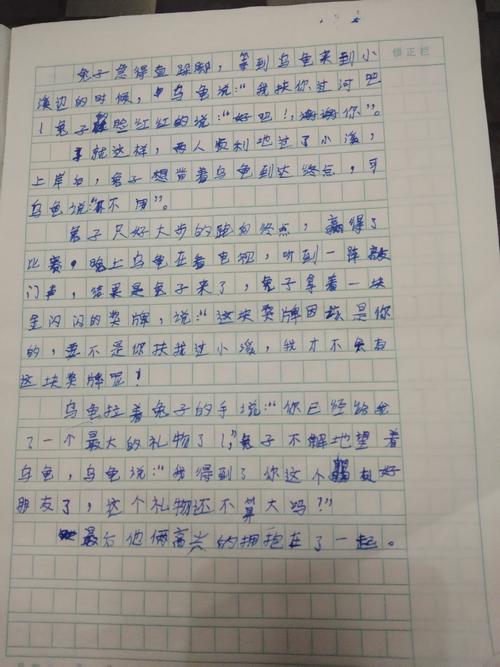 修正栏
兔子急得直跺脚，等到乌龟来到小
溪边的时候，乌龟说：“我扶你过河吧
！兔子脸红红的说：“好吧！，谢谢你”。
就这样，两人顺利地过了小溪，
上岸后，兔子想带着乌龟到达终点，可
乌龟说“不用”。
兔子只好大步的跑向终点，赢得了
比赛，晚上乌龟在看电视，听到一阵敲
门声，结果是兔子来了，兔子拿着一块
金闪闪的奖牌，说：“这块奖牌因该是你
的，要不是你扶我过小溪，我才不会有
这块奖牌呢！
乌龟拉着兔子的手说：“你已经给我
了一个最大的礼物了！，”兔子不解地望着
乌龟，乌龟说：“我得到了你这个好
朋友了，这个礼物还不算大吗？”
最后他俩高兴的拥抱在了一起。